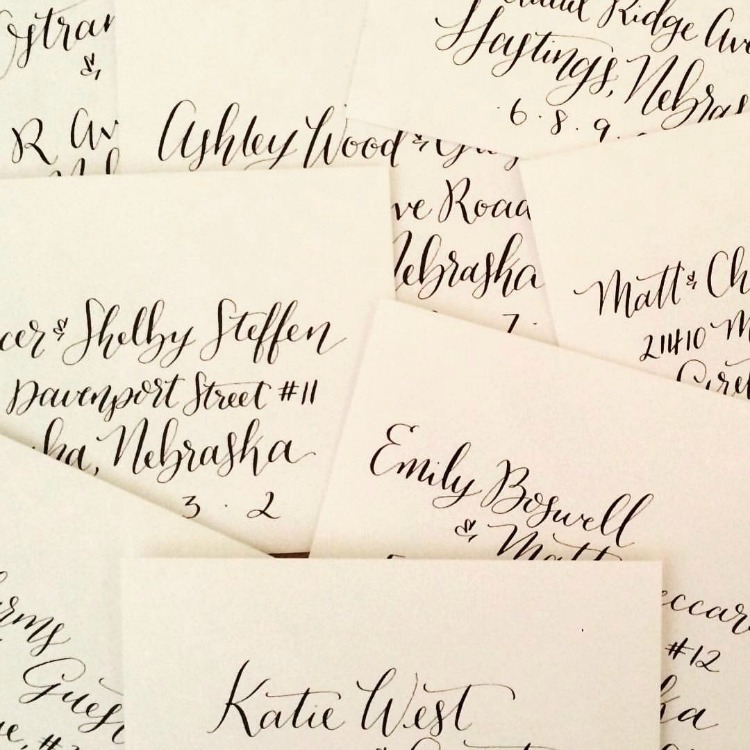 &
R Av
Ridge Av
Hastings, Nebras
6 · 8 · 9 ·
Ashley Wood &
ve Road
Nebraska
7 ·
Matt & Ch
21410 M
Gret
cer & Shelby Steffen
Davenport Street #11
ha, Nebraska
3 · 2
Emily Boswell
& Matt
eccar
#12
ka
arms
Gues
e, #
Katie West
&